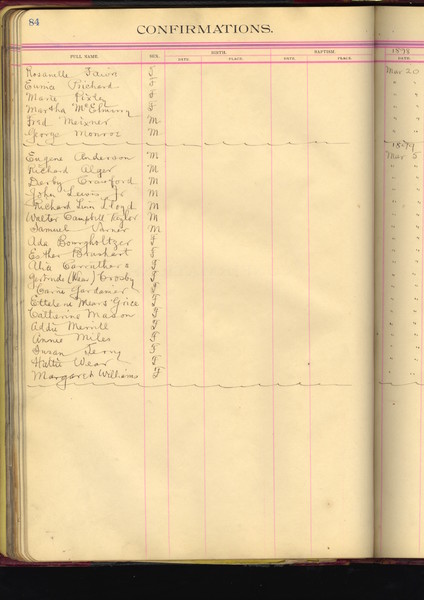 84
CONFIRMATIONS.
FULL NAME. SEX. BIRTH. BAPTISM. 1898
DATE. PLACE. DATE. PLACE. DATE.
Rosanelle F Mar 20
Emma Prichard F "
Marie Pixley F "
Martha McElmurry F "
Fred Meixner M "
George Monroe M "
1899
Eugene Anderson M Mar 5
Richard Alger M "
Derby Crawford M "
John Lewis Jr M "
Richard Linn Lloyd M "
Walter Campbell Taylor M "
Samuel Varner M "
Ada Bourgholtzer F "
Esther Brunhart F "
Alia Carruthers F "
Gertrude (Rear) Crosby F "
Carrie Gardanier F "
Ettelene Mears Grice F "
Catherine Mason F "
Addie Merrill F "
Annie Miles F "
Susan Terry F "
Hattie Wear F "
Margaret Williams F "